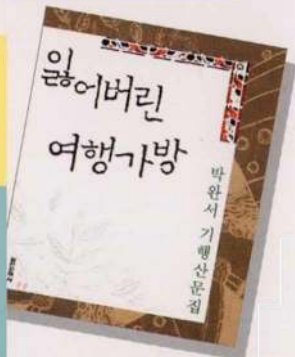 잃어버린
여행가방
박완서 기행산문집